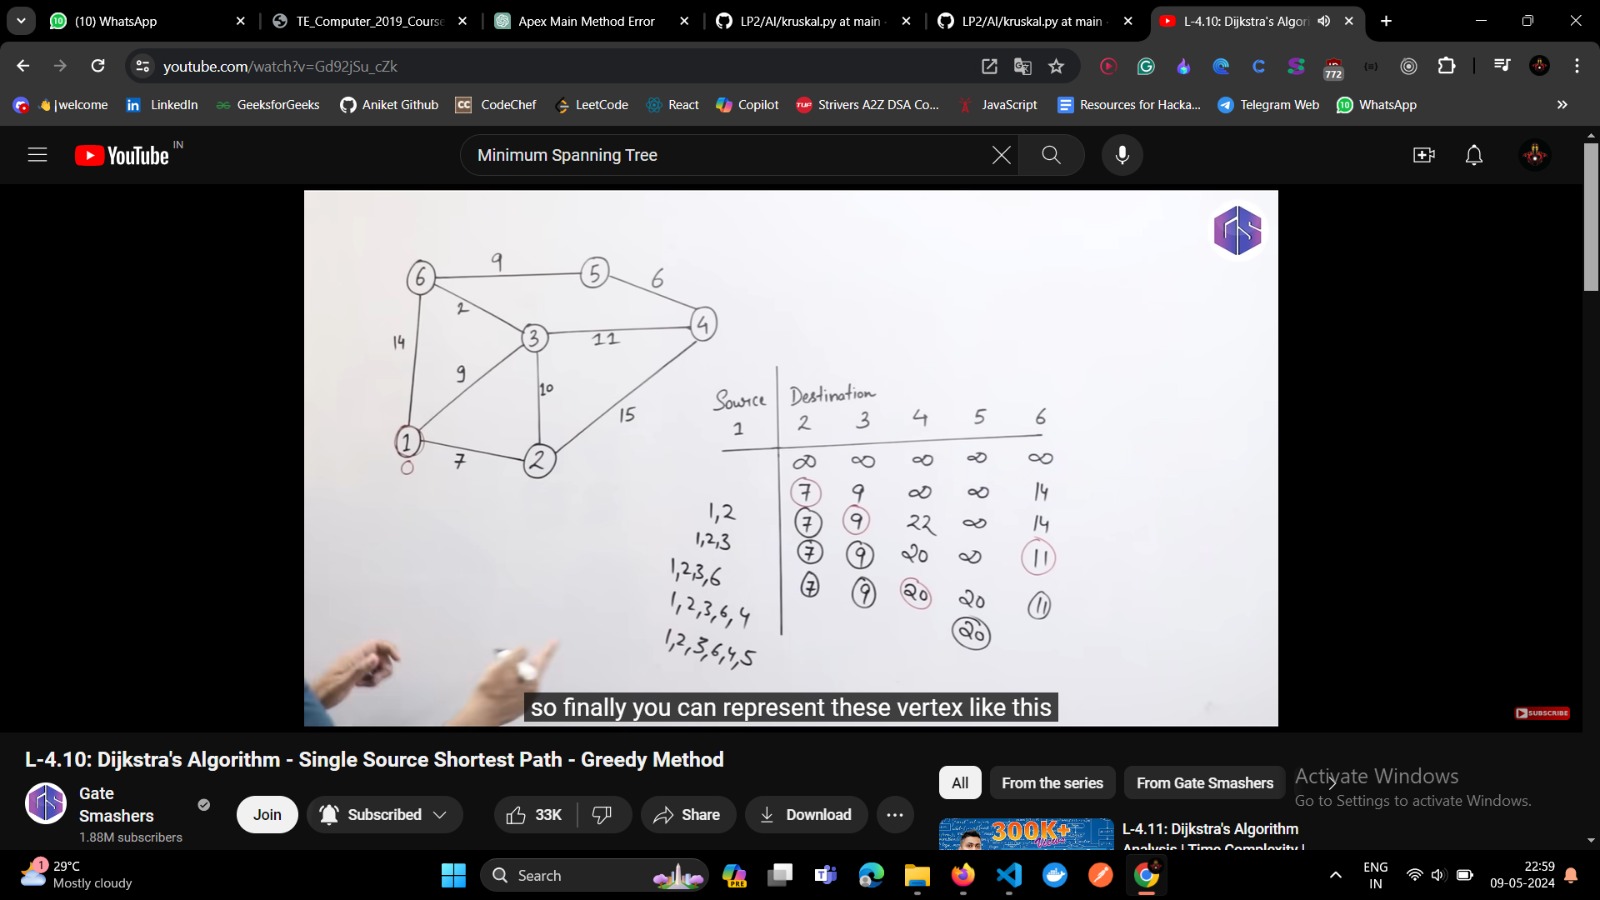 (10) WhatsApp
TE_Computer_2019_Course
Apex Main Method Error
LP2/AI/kruskal.py at main
LP2/AI/kruskal.py at main
L-4.10: Dijkstra's Algori
youtube.com/watch?v=Gd92jSu_cZk
772
|welcome
LinkedIn
GeeksforGeeks
Aniket Github
CC CodeChef
LeetCode
React
Copilot
TUF Strivers A2Z DSA Co...
JavaScript
Resources for Hacka...
Telegram Web
10 WhatsApp
YouTube IN
Minimum Spanning Tree
6 9 5 6
2
14 3 11 4
9 10
15
1 7 2
0
Source Destination
1 2 3 4 5 6
∞ ∞ ∞ ∞ ∞
7 9 ∞ ∞ 14
1,2 7 9 22 ∞ 14
1,2,3 7 9 20 ∞ 11
1,2,3,6 7 9 20 20 11
1,2,3,6,4 20
1,2,3,6,4,5
so finally you can represent these vertex like this
SUBSCRIBE
L-4.10: Dijkstra's Algorithm - Single Source Shortest Path - Greedy Method
Gate
Smashers
1.88M subscribers
Join
Subscribed
33K
Share
Download
All
From the series
From Gate Smashers
Activate Windows
Go to Settings to activate Windows.
300K+
L-4.11: Dijkstra's Algorithm
Analysis | Time Complexity |
1
29°C
Mostly cloudy
Search
PRE
ENG
IN
22:59
09-05-2024